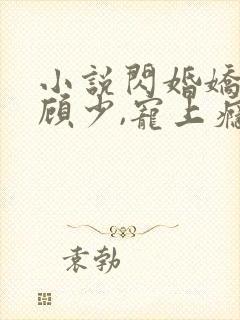 小說閃婚嬌
顧少,寵上癮
袁勃